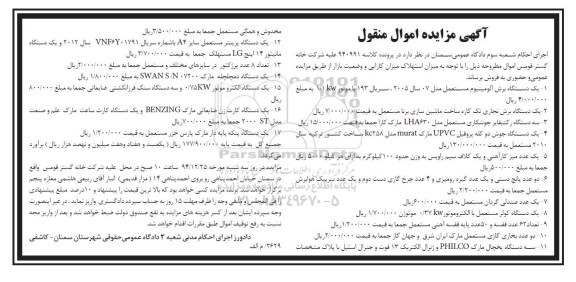 آگهی مزایده اموال منقول
اجرای احکام شعبه سوم دادگاه عمومی سمنان در نظر دارد در پرونده کلاسه ۹۴۰۹۹۱ علیه شرکت خانه
گستر قومس اموال مطروحه ذیل را با توجه به میزان استهلاک میزان کارایی و وضعیت بازار از طریق مزایده
عمومی و حضوری به فروش برساند.
۱- یک دستگاه برش آلومینیوم مستعمل مدل ۰۷ سال ۲۰۰۵، سریال ۱۹۳ با موتور ۱.۱ kw به مبلغ
۴/۰۰۰/۰۰۰ ریال
۲- یک دستگاه برش نجاری تک کاره ساخت ماشین سازی برنا مستعمل به قیمت ۷/۰۰۰/۰۰۰ ریال
۳- سه دستگاه کتیفایر جوشکاری مستعمل مدل LHA۶۳۰ مارک کارا جمعا به قیمت ۱۵/۰۰۰/۰۰۰ ریال
۴- یک دستگاه جوش دو کله پروفیل UPVC مارک murat مدل kc۲۵۸ ساخت کشور ترکیه سال
۲۰۱۱ مستعمل به قیمت ۱۳۰/۰۰۰/۰۰۰ ریال
۵- یک عدد میز کار آهنی و یک کلاف سیم روپس به وزن حدود ۱۰۰ کیلوگرم
جمعا به مبلغ ۵۰۰/۰۰۰ ریال
۶- دو عدد پانچ دستی و یک عدد گیره رومیزی و ۴ عدد چرخ گاری دست دوم و یک عدد سرپیک هوابرش
مستعمل جمعا به قیمت ۲/۲۰۰/۰۰۰ ریال
۷- یک عدد صندلی گردان مستعمل به قیمت ۶۰۰/۰۰۰ ریال
۸- یک دستگاه کولر مستعمل با الکتروموتور ۰/۳۷ kw موتوژن ۱/۷۰۰/۰۰۰ ریال
۹- تعداد ۶۲ عدد قفسه و ۵۰ عدد پایه قفسه آهنی مستعمل جمعا به قیمت ۱/۲۰۰/۰۰۰ ریال
۱۰- دو عدد بخاری گازی مستعمل مارک ایران شرق و جهان گاز جمعا به قیمت ۲/۰۰۰/۰۰۰ ریال
۱۱- سه دستگاه یخچال مارک PHILCO و ژنرال الکتریک ۱۳ فوت و جنرال استیل با پلاک مشخصات
مخدوش و همگی مستعمل جمعا به مبلغ ۳/۵۰۰/۰۰۰ ریال
۱۲- یک دستگاه پرینتر مستعمل سایز A۴ با شماره سریال VNF۶Y۰۱۷۹۱ سال ۲۰۱۲ و یک دستگاه
مانیتور ۱۴ اینچ LG مستهلک جمعا به قیمت ۳/۷۰۰/۰۰۰ ریال
۱۳- تعداد ۸ عدد پرژکتور در سایزهای مختلف و مستعمل جمعا به مبلغ ۲/۰۰۰/۰۰۰ ریال
۱۴- یک دستگاه دمجلبه مارک SWAN S/N ۰۷۲۰۰ به مبلغ ۱/۸۰۰/۰۰۰ ریال
۱۵- یک دستگاه الکترو موتور ۰/۷۵KW و سه دستگاه سنگ فرز انگشتی ضایعاتی جمعا به مبلغ ۸۰۰/۰۰۰
ریال
۱۶- یک دستگاه کارت زن ضایعاتی مارک BENZING و یک دستگاه کارت ساعت مارک علم و صنعت
مدل ST ۲۰۰۰ جمعا به مبلغ ۷۰۰/۰۰۰ ریال
۱۷- یک دستگاه پنکه پایه دار مارک پارس خزر مستعمل به قیمت ۱/۴۰۰/۰۰۰ ریال
جمع کل به قیمت پایه ۱۷۷/۹۰۰/۴۰۰ ریال (یکصد و هفتاد وهفت میلیون و نهصد هزار ریال) برآورد
می‌گردد
مزایده در روز سه شنبه مورخه ۹۴/۱۲/۲۵ ساعت ۱۰ صبح در محل علیه شرکت خانه گستر قومس واقع
در سمنان خیابان احمدپناهی رو بروی احمدپناهی ۱۴ (مزار قدیمی) انبار آقای ربیعی هاشمی مغازه پنجم
برگزار خواهد شد. برنده مزایده کسی خواهد بود که بالا ترین قیمت را پیشنهاد و ۱۰ درصد مبلغ پیشنهادی
را فی المجلس و مابقی وجه را ظرف مهلت ۱۵ روز به حساب سپرده دادگستری واریز نماید. در غیر اینصورت
وجه سپرده ایشان بعد از کسر هزینه های مزایده به نفع صندوق دولت ضبط خواهد شد و بعد از واریز مجدد
نسبت به رفع توقیف اموال طبق مقررات اقدام خواهد شد.
دادورز اجرای احکام مدنی شعبه ۳ دادگاه عمومی حقوقی شهرستان سمنان- کاشفی
۲۶۲۹/ م الف